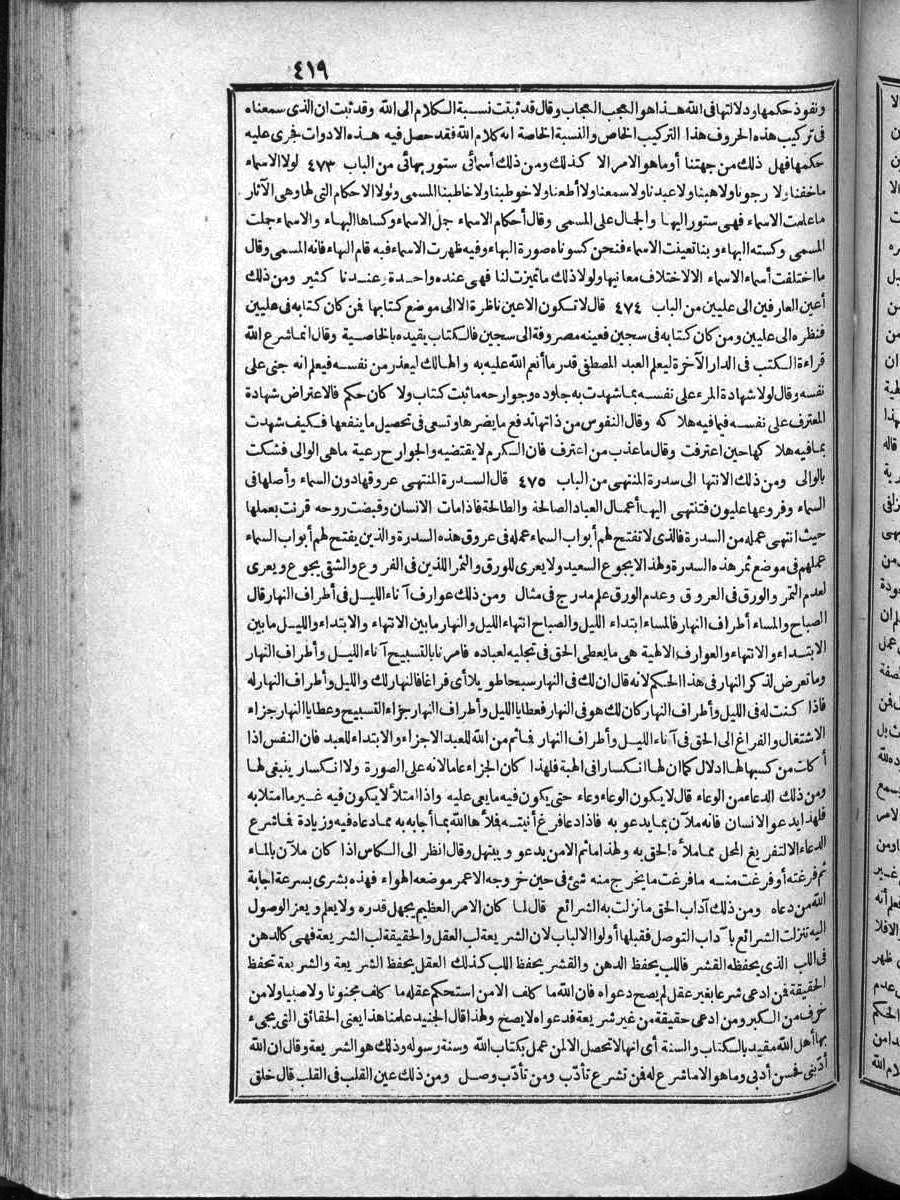 ٤١٩
ونفوذ حكمها ودلالتها فى الله هذا هو العجب العجاب وقال قد ثبتت نسبة الكلام الى الله وقد ثبت ان الذى سمعناه
فى تركيب هذه الحروف هذا التركيب الخاص والنسبة الخاصة انه كلام الله فقد حصل فيه هذه الادوات فجرى عليه
حكمها فهل ذلك من جهتنا أو ما هو الامر الا كذلك ومن ذلك أسمائى ستور بهائى من الباب ٤٧٣ لولا الاسماء
ما خفنا ولا رجونا ولا هبنا ولا عبدنا ولا سمعنا ولا أطعنا ولا خوطبنا ولا خاطبنا المسمى ولولا الاحكام التى لها وهى الآثار
ما علمت الاسماء فهى ستور البها والجال على المسمى وقال أحكام الاسماء جل الاسماء وكساها البهاء والاسماء جلت
المسمى وكسته البهاء وبنا تعينت الاسماء فنحن كسوناه صورة البهاء وفيه ظهرت الاسماء فيه قام البهاء فانه المسمى وقال
ما اختلفت أسماء الاسماء الا لاختلاف معانيها ولولا ذلك ما تميزت لنا فهى عنده واحدة وعندنا كثير ومن ذلك
أعين العارفين الى عليين من الباب ٤٧٤ قال لا تكون الاعين ناظرة الا الى موضع كتابها فمن كان كتابه فى عليين
فنظره الى عليين ومن كان كتابه فى سجين فعينه مصروفة الى سجين فالكتاب يقيده بالخاصية وقال انما شرع الله
قراءة الكتب فى الدار الآخرة ليعلم العبد المصطفى قدر ما أنعم الله عليه به والهالك ليعذر من نفسه فيعلم انه جنى على
نفسه وقال لولا شهادة المرء على نفسه بما شهدت به جلوده وجوارحه ما ثبت كتاب ولا كان حكم فالاعتراض شهادة
المعترف على نفسه فيما فيه هلاكه وقال النفوس من ذاتها تدفع ما يضرها وتسعى فى تحصيل ما ينفعها فكيف شهدت
بما فيه هلاكها حين اعترفت وقال ما عذب من اعترف فان الكرم لا يقتضيه والجوارح رعية ماهى الوالى فشكت
بالوالى ومن ذلك الانتها الى سدرة المنتهى من الباب ٤٧٥ قال السدرة المنتهى عروقها دون السماء وأصلها فى
السماء وفروعها عليون فتنتهى اليها أعمال العباد الصالحة والطالحة فاذا مات الانسان وقبضت روحه قرنت بعملها
حيث انتهى عمله من السدرة فالذى لا تفتح لهم أبواب السماء عمله فى عروق هذه السدرة والذين يفتح لهم أبواب السماء
عملهم فى موضع ثمر هذه السدرة ولهذا لا يجوع السعيد ولا يعرى للورق والثمر اللذين فى الفروع والشقى يجوع ويعرى
لعدم الثمر والورق فى العروق وعدم الورق علم مدرج فى مثال ومن ذلك عوارف آناء الليل فى أطراف النهار قال
الصباح والمساء أطراف النهار فالمساء ابتداء الليل والصباح انتهاء الليل والنهار ما بين الانتهاء والابتداء والليل ما بين
الابتداء والانتهاء والعوارف الالهية هى ما يعطى الحق فى تجليه لعباده فامرنا بالتسبيح آناء الليل وأطراف النهار
وما تعرض لذكر النهار فى هذا الحكم لانه قال ان لك فى النهار سبحا طويلا أى فراغا فالنهار لك والليل وأطراف النهار له
فاذا كنت له فى الليل وأطراف النهار كان لك هو فى النهار فعطايا الليل وأطراف النهار جزاء التسبيح وعطايا النهار جزاء
الاشتغال والفراغ الى الحق فى آناء الليل وأطراف النهار فماثم من الله للعبد الا جزاء والابتداء للعبد فان النفس اذا
أكات من كسبها لها ادلال كما ان لها انكسارا فى الهبة فلهذا كان الجزاء عاما لانه على الصورة ولا انكسار ينبغى لها
ومن ذلك الدعاء من الوعاء قال لا يكون الوعاء وعاء حتى يكون فيه ما يعى عليه واذا امتلأ لا يكون فيه غير ما امتلا به
فلهذا يدعو الانسان فانه ملآن بما يدعو به فاذا دعا فرغ أنيته فلأها الله بما أجابه به مما دعاه فيه وزيادة فما شرع
الدعاء الا لتفريغ المحل مما ملأه الحق به ولهذا ماثم الا من يدعو ويبتهل وقال انظر الى الكاس اذا كان ملآن بالماء
ثم فرغته أو فرغت منه ما فرغت ما يخرج منه شئ فى حين خروجه الا عمر موضعه الهواء فهذه بشرى بسرعة اجابة
الله من دعاه ومن ذلك آداب الحق ما نزلت به الشرائع قال لما كان الامر العظيم يجهل قدره ولا يعلم ويعز الوصول
اليه تنزلت الشرائع بآداب التوصل فقبلها أولوا الالباب لان الشريعة لب العقل والحقيقة لب الشريعة فهى كالدهن
فى اللب الذى يحفظه القشر فاللب يحفظ الدهن والقشر يحفظ اللب كذلك العقل يحفظ الشريعة والشريعة تحفظ
الحقيقة فمن ادعى شرعا بغير عقل لم يصح دعواه فان الله ما كلف الا من استحكم عقله ما كلف مجنونا ولا صبيا ولا من
خرف من الكبر ومن ادعى حقيقة من غير شريعة فدعواه لا يصح ولهذا قال الجنيد علمنا هذا يعنى الحقائق التى يجىء
بها أهل الله مقيد بالكتاب والسنة أى انها لا تحصل الا لمن عمل بكتاب الله وسنة رسوله وذلك هو الشريعة وقال ان الله
أدّبنى فحسن أدبى وما هو الا ما شرع له فمن تشرع تأدّب ومن تأدّب وصل ومن ذلك عين القلب فى القلب قال خلق